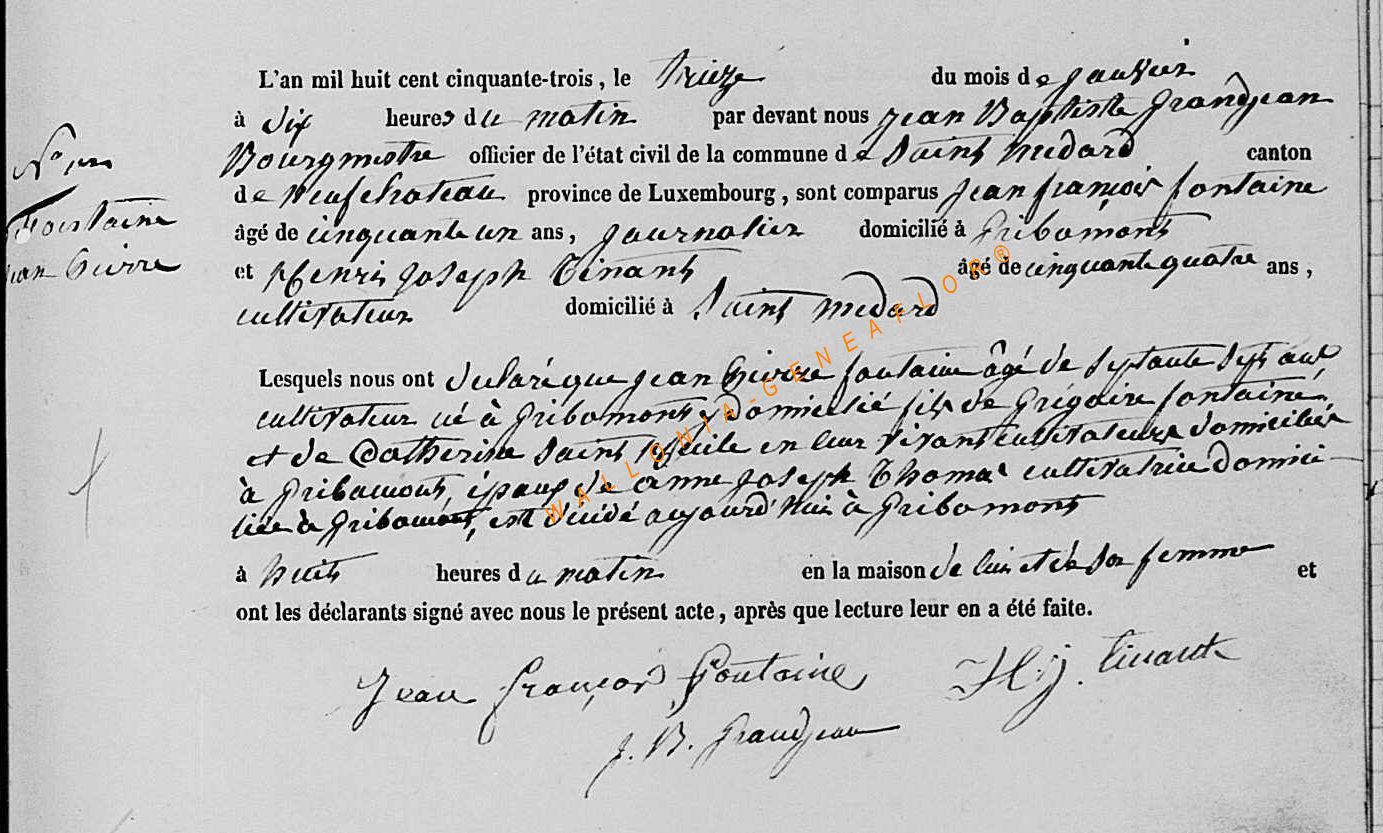 L'an mil huit cent cinquante-trois, le treize du mois de Janvier
à dix heures du matin par devant nous Jean Baptiste Grandjean
Bourgmestre officier de l'état civil de la commune de Saint Médard canton
de Neufchateau province de Luxembourg, sont comparus Jean françois fontaine
âgé de cinquante un ans, Journalier domicilié à Gribomont
et Henri Joseph Tinant âgé de cinquante quatre ans,
cultivateur domicilié à Saint Médard
Lesquels nous ont déclaré que Jean Pierre fontaine âgé de Septante Sept ans,
cultivateur né à Gribomont y domicilié fils de Grégoire fontaine,
et de Catherine Saint en leur vivant cultivateurs domiciliés
à Gribomont, époux de anne Joseph Thomas cultivatrice domici-
liée à Gribomont, est décédé aujourd'hui à Gribomont
à huit heures du matin en la maison de lui et de Son femme et
ont les déclarants signé avec nous le présent acte, après que lecture leur en a été faite.
Jean françois fontaine H. J. Tinant
J. B. Grandjean
N°
Fontaine
Jean Pierre
WALLONIA-GENEAFLOR®